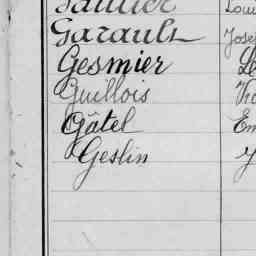 Garault Jose
Gesmier
Guillois
Gâtel Em
Geslin